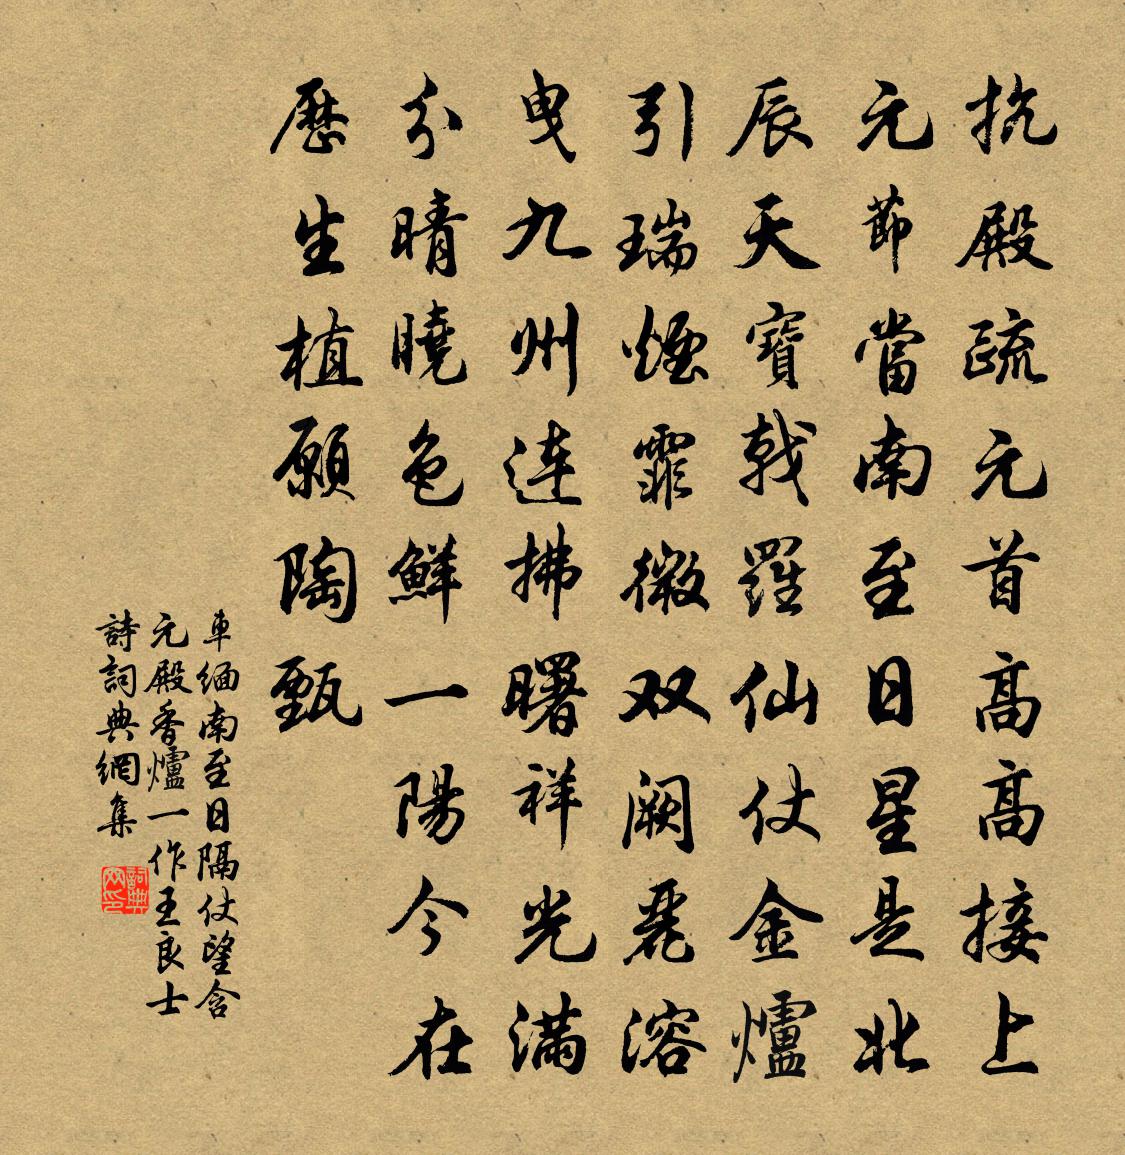 抗殿疏元首高高接上
元節當南至日星是北
辰天寶戟羅仙仗金爐
引瑞煙霏微双闕麗溶
曳九州連拂曙祥光滿
分晴曉色鮮一陽今在
歷生植願陶甄
車缅南至日隔仗望含
元殿香爐一作王良士
詩詞典網集
詞典网印